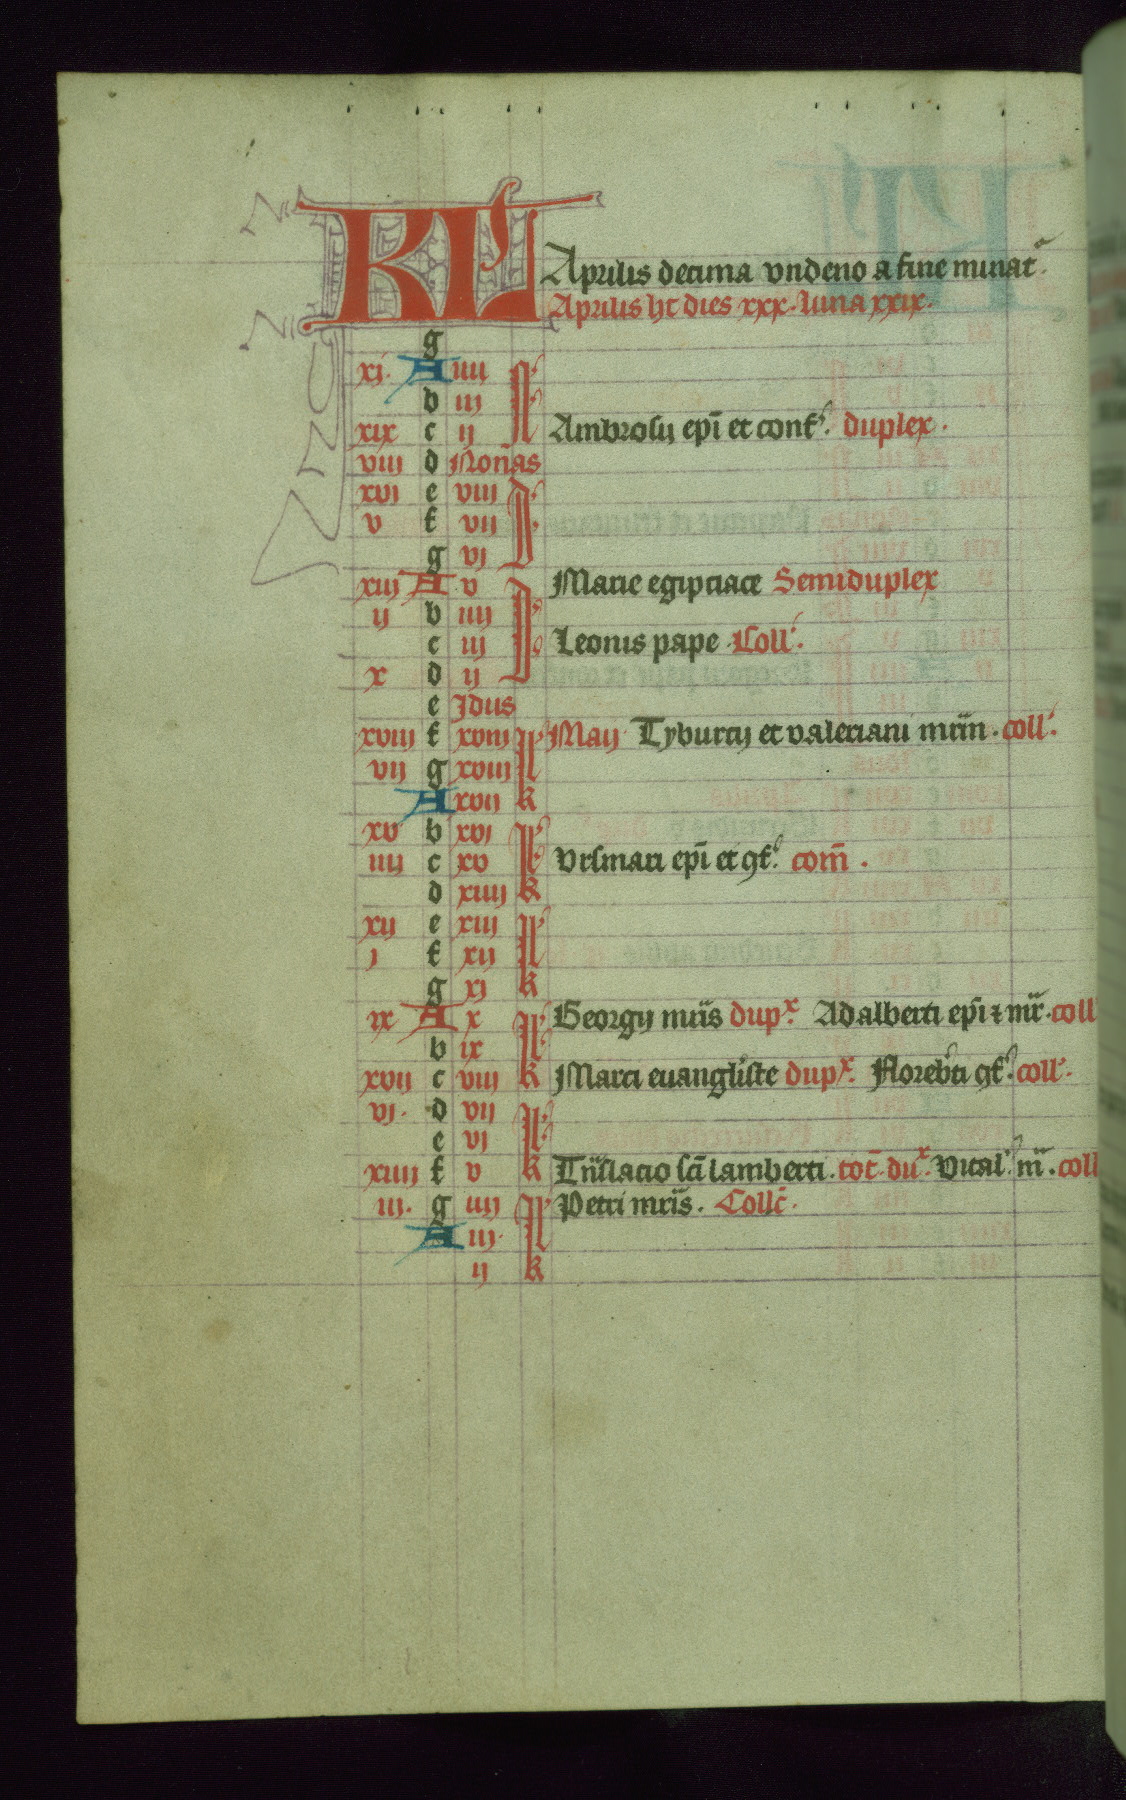 KL Aprilis decima vndeno a fine minat̄.
Aprilis ht dies xxx. luna xxix.
g
xj. A iiij N
b iij
xix c ij Ambrosij ep̄i et conf. duplex.
viij d Nonas
xvj e viij Id
v f vij
g vj
xiij A v Id Marie egipciace Semiduplex
ij b iiij
c iij Leonis pape Coll.
x d ij
e Jdus
xviij f xviij kl Maij Tyburcij et valeriani mr̄m. coll.
vij g xviij
A xvij k
xv b xvj kl
iiij c xv Vrsmari ep̄i et gf. com̄.
d xiiij k
xij e xiij kl
j f xij
g xj k
ix A x kl Georgij mr̄is dupx. Adalberti ep̄i z mr̄. coll
b ix
xvij c viij k Marci euangliste dupx. Florēti gf. coll.
vj. d vij kl
e vj
xiiij f v k Trn̄slacio sc̄i lamberti. tot̄. dux. Vital. m̄. coll
iij. g iiij kl Petri mr̄is. Collc̄.
A iij.
ij k